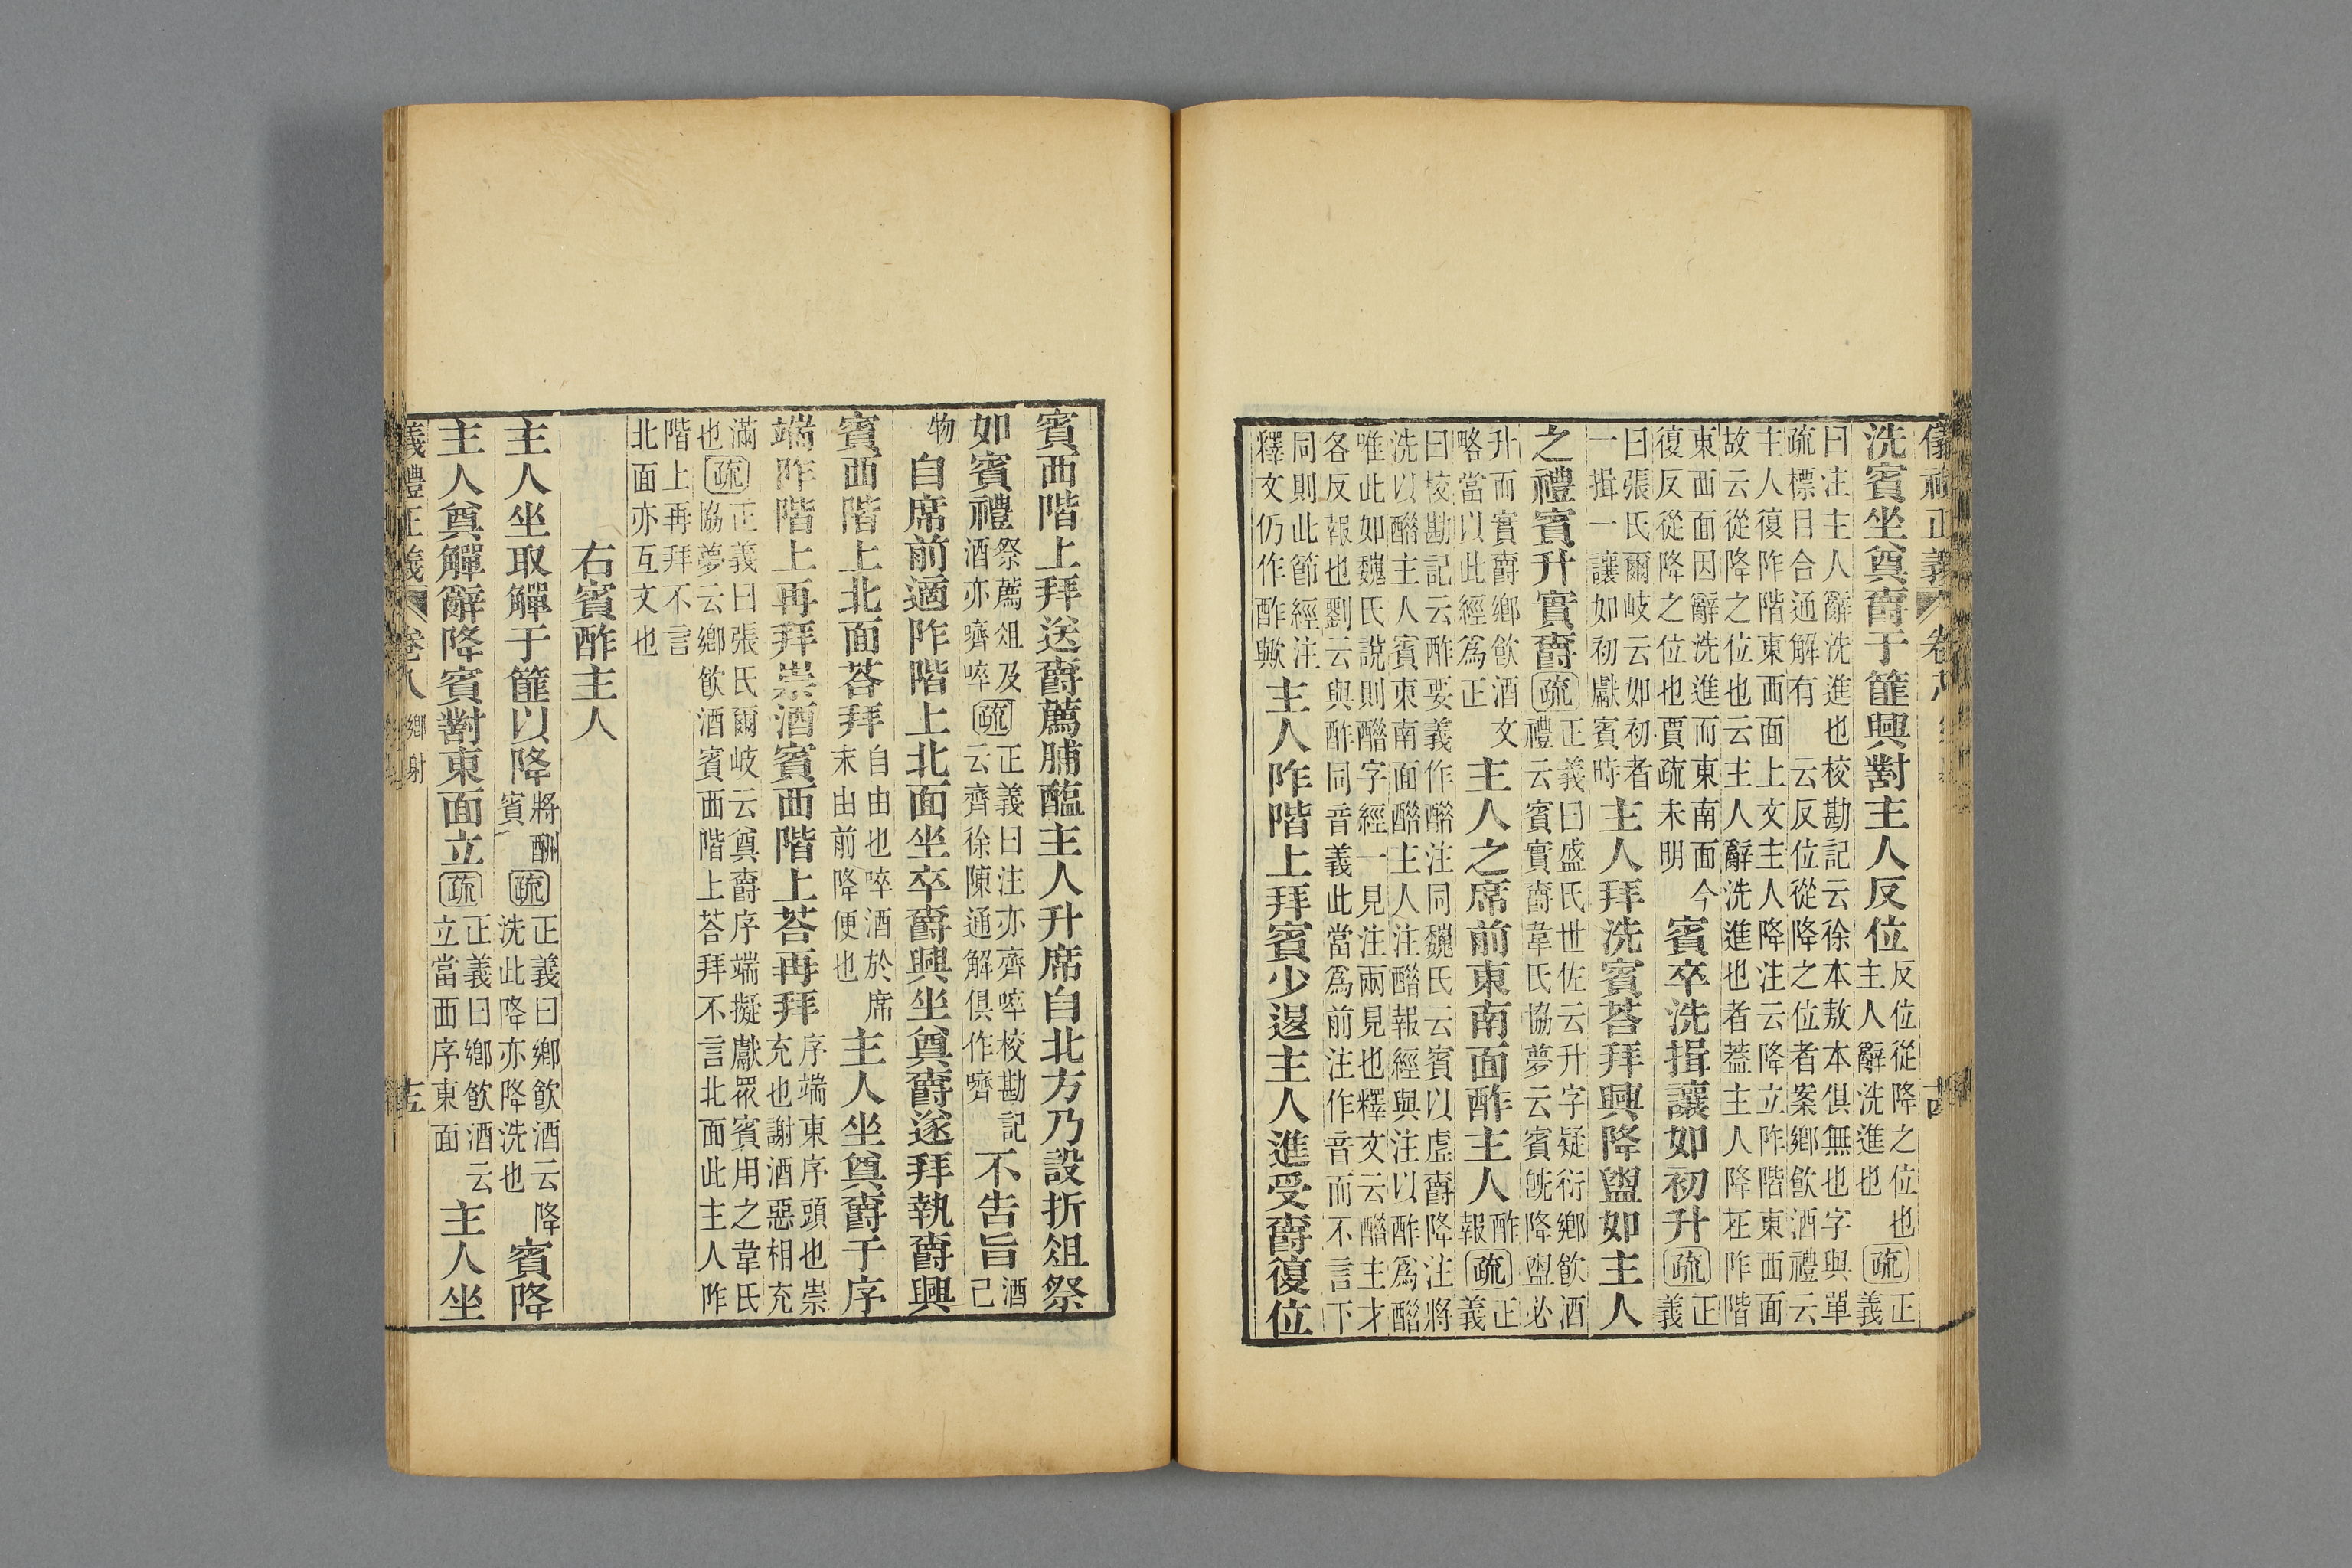 儀禮正義 卷八 十四
洗賓坐奠爵于篚興對主人反位反位從降之位也主人辭洗進也疏正義
曰注主人辭洗進也校勘記云徐本敖本俱無也字與單
疏標目合通解有 云反位從降之位者案鄉飲酒禮云
主人復阼階東西面上文主人降注云降立阼階東西面
故云從降之位也云主人辭洗進也者蓋主人降在阼階
東西面因辭洗進而東南面今復反從降之位也賈疏未明賓卒洗揖讓如初升疏正義
曰張氏爾岐云如初者一揖一讓如初獻賓時主人拜洗賓荅拜興降盥如主人
之禮賓升實爵疏正義曰盛氏世佐云升字疑衍鄉飲酒禮云賓實爵韋氏協夢云賓旣降盥必
升而實爵鄉飲酒文略當以此經爲正主人之席前東南面酢主人酢報疏正義
曰校勘記云酢要義作醋注同魏氏云賓以虛爵降注將
洗以醋主人賓東南面醋主人注醋報經與注以酢爲醋
唯此如魏氏說則醋字經一見注兩見也釋文云醋主才
各反報也劉云與酢同音義此當爲前注作音而不言下
同則此節經注釋文仍作酢歟主人阼階上拜賓少退主人進受爵復位
賓西階上拜送爵薦脯醢主人升席自北方乃設折俎祭
如賓禮祭薦俎及酒亦嚌啐疏正義曰注亦齊啐校勘記云齊徐陳通解俱作嚌不告旨酒己
物自席前適阼階上北面坐卒爵興坐奠爵遂拜執爵興
賓西階上北面荅拜自由也啐酒於席末由前降便也主人坐奠爵于序
端阼階上再拜崇酒賓西階上荅再拜序端東序頭也崇充也謝酒惡相充
滿也疏正義曰張氏爾岐云奠爵序端擬獻眾賓用之韋氏協夢云鄉飲酒賓西階上荅拜不言北面此主人阼
階上再拜不言北面亦互文也
右賓酢主人
主人坐取觶于篚以降將酬賓疏正義曰鄉飲酒云降洗此降亦降洗也賓降
主人奠觶辭降賓對東面立疏正義曰鄉飲酒云立當西序東面主人坐
儀禮正義 卷八 鄉射 十五